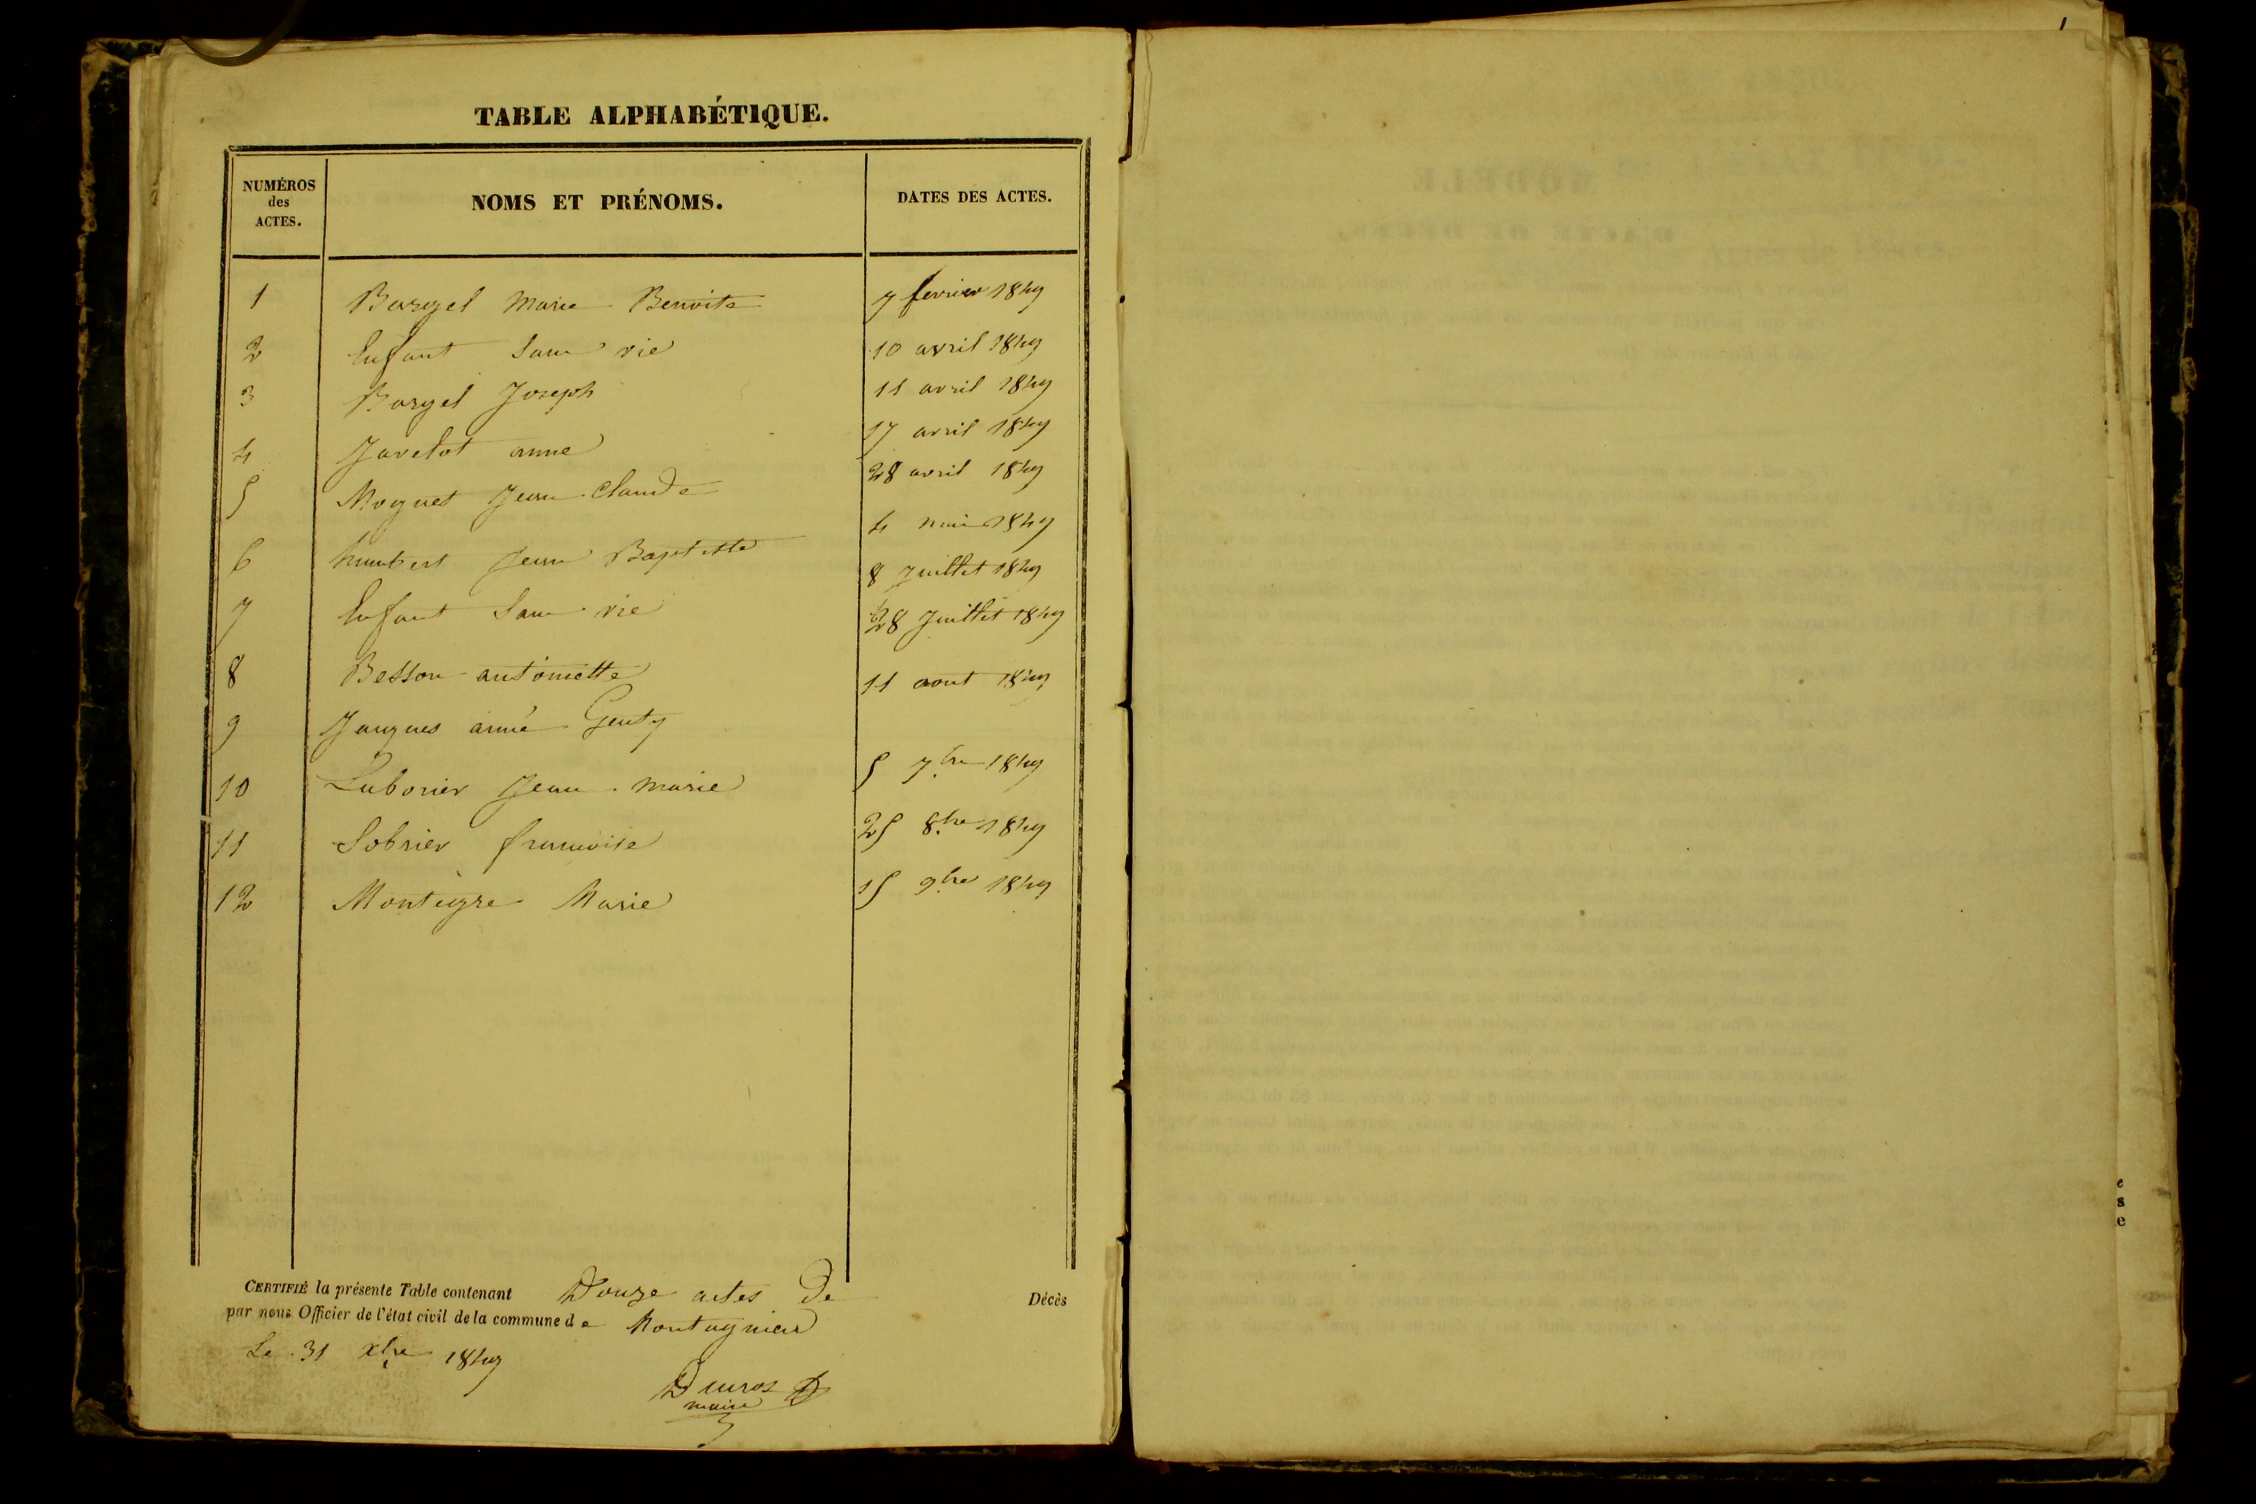 TABLE ALPHABÉTIQUE.
NUMÉROS des ACTES. NOMS ET PRÉNOMS. DATES DES ACTES.
1 Bargel Marie Benoite 7 fevrier 1849
2 Enfant Sans vie 10 avril 1849
3 Bargel Joseph 11 avril 1849
4 Javelot anne 17 avril 1849
5 Moguet Jean Claude 28 avril 1849
6 humbert Jean Baptiste 4 mai 1849
7 Enfant Sans vie 8 Juillet 1849
8 Besson antoinette 28 Juillet 1849
9 Jacques aimé Genty 11 aout 1849
10 Laborier Jean marie 5 7bre 1849
11 Sobrier francoise 25 8bre 1849
12 Marie 15 9bre 1849
CERTIFIÉ la présente Table contenant Douze actes de Décès
par nous Officier de l'état civil de la commune de Montagnieu
Le 31 Xbre 1849
maire
e
s
e